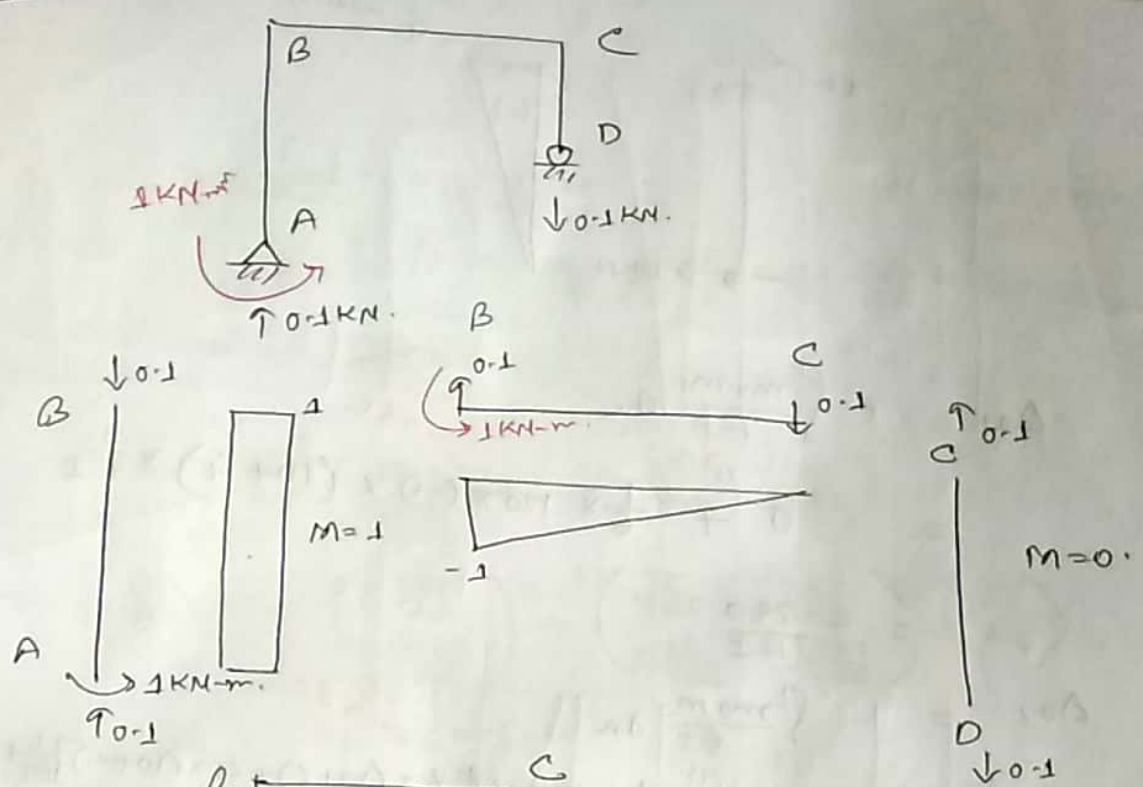 B
C
D
1KN-m
A
↓0.1KN.
↑0.1KN.
B
↓0.1
0.1
C
B
1
1KN-m.
↓0.1
↑0.1
C
M=1
M=0.
-1
A
1KN-m.
↑0.1
D
↓0.1
C